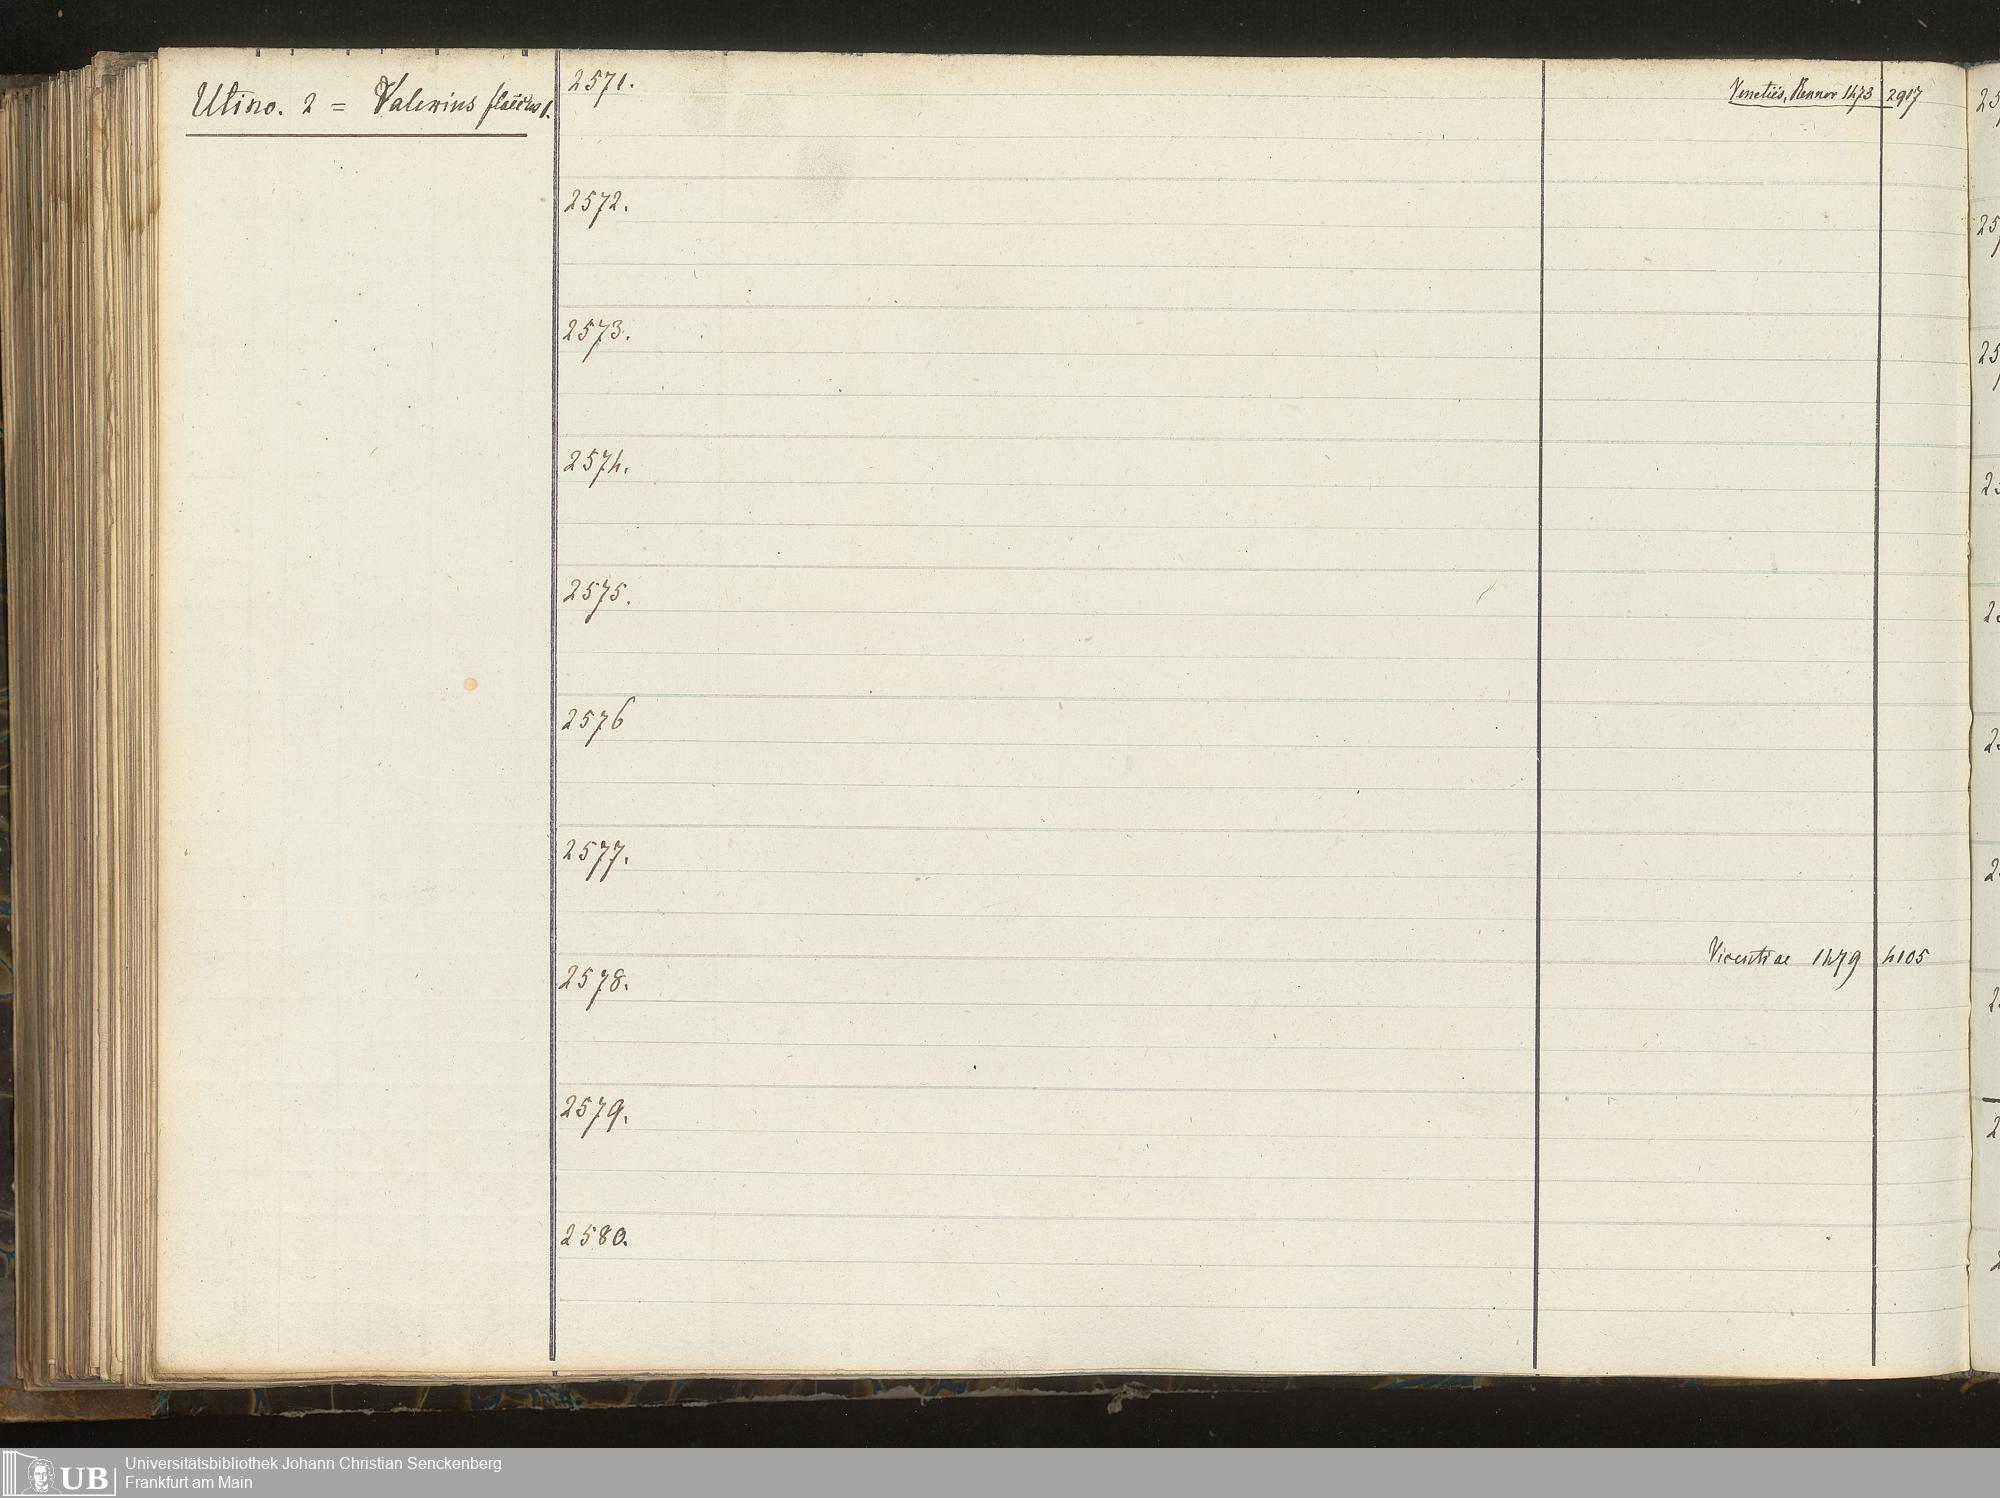 Utino. 2 = Valerius flaccus 1.
2571.
Venetiis, Renner 1473 2917
2572.
2573.
2574.
2575.
2576
2577.
Vicentiae 1479 4105
2578.
2579.
2580.
UB
Universitätsbibliothek Johann Christian Senckenberg
Frankfurt am Main